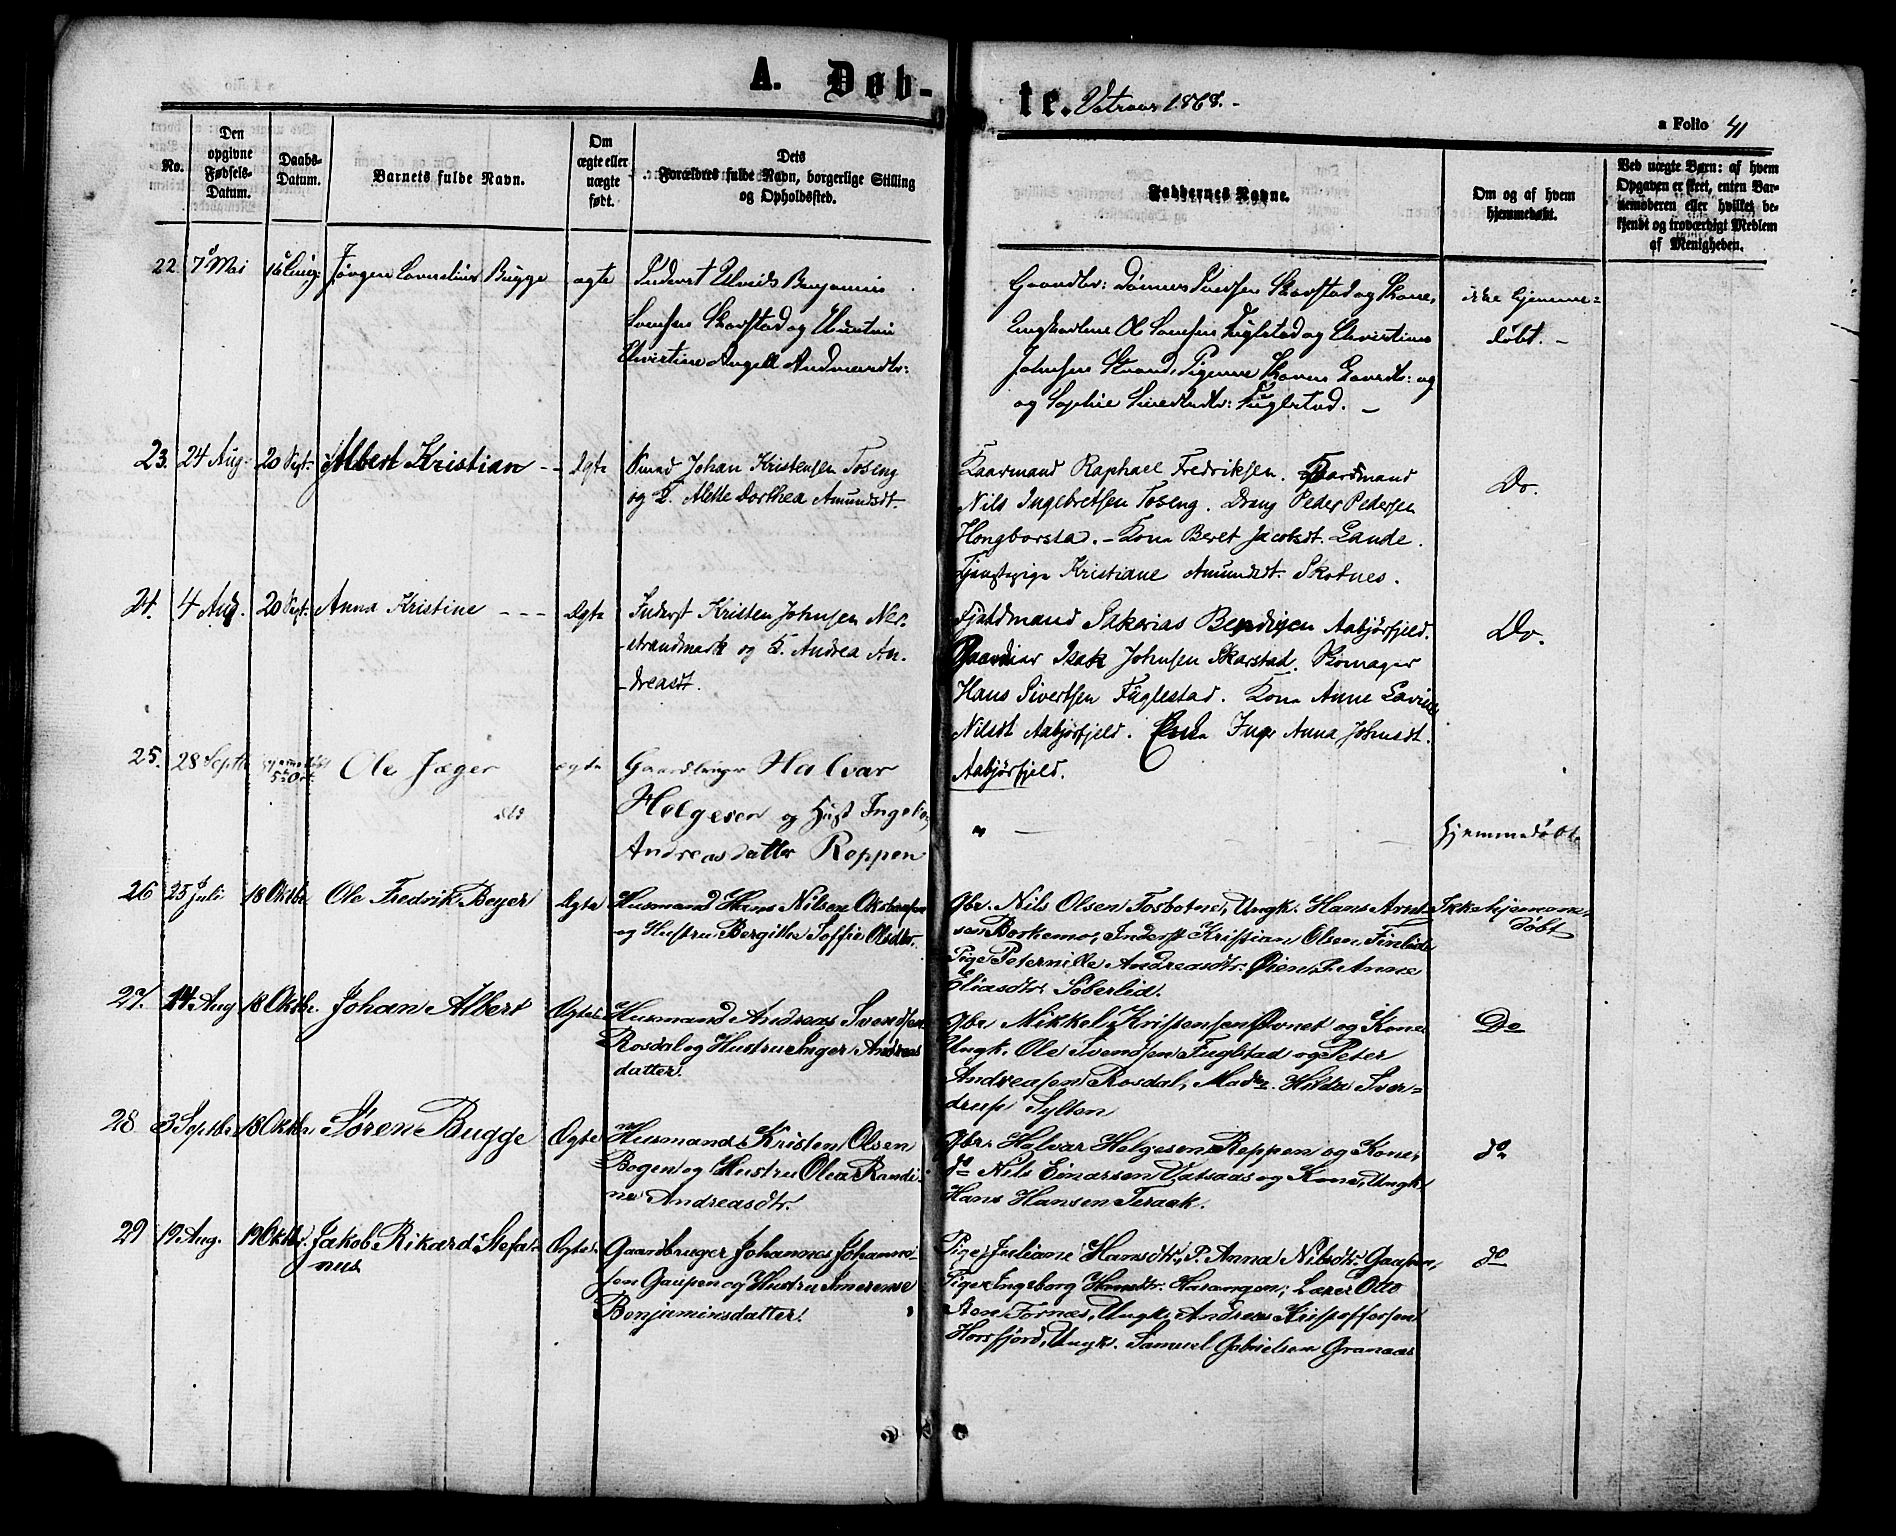 A. Døb-
te. 1868.
a Folio 41
No.
Den opgivne Fødsels-Datum.
Daabs-Datum.
Barnets fulde Navn.
Om ægte eller uægte født.
Dets Forældres fulde Navn, borgerlige Stilling og Opholdssted.
Faddernes Navne.
Om og af hvem hjemmedøbt.
Ved uægte Børn: af hvem Opgaven er skeet, enten Barnemoderen eller hvilket bekjendt og troværdigt Medlem af Menigheden.
22 7de Mai 16 Aug: Jørgen Cornelius Bugge ægte Inderst Benjamin
Skarstad og Hustru
Christine Angell
Skarstad og Kone,
Ungkarlene Ole Fuglstad og Christian
Johnsen Strand, Pigerne og
og Sophie Fuglstad. –
ikke hjemme-
døbt. –
23. 24 Aug. 20 Sept. Albert Kristian - - Ægte Johan Kristensen Toseng
og K. Alette Dorthea Amundsdt.
Kaarmand Raphael Fredriksen. Gaardmand
Nils Ingebretsen Toseng. Dreng Peder Pedersen
Hongbarstad. – Kone Beret Jacobsdt. Lande.
Tjenstepige Kristiane Amundsdt. Skotnes.
Do.
24. 4 Aug. 20 Sept. Anna Kristine - - - Ægte Inderst Kristen Johnsen Ner-
strandmark og K. Andrea An-
dreasdt.
Fjeldmand Sakerias Bendigsen Aabjørfjeld.
Isak Johnsen Skarstad. Skomager
Hans Sivertsen Fuglestad. Kone Anne Lovise
Nilsdt Aabjørfjeld. Inge Anna Johnsdt.
Aabjørfjeld.
Do.
25. 28 Septb 5te Okt. Ole Jæger ægte Gaardbruger Halvar
Helgesen og Hust Ingeborg
Andreasdatter Reppen
" –
hjemmedøbt
26 25de Juli 18 Oktbr Ole Fredrik Beyer Ægte Husmand Hans Nilsen
og Hustru Bergithe Soffie Olsdtr.
Gbr. Nils Olsen Tosbotn, Ungk. Hans Arnt-
sen Borkamo, Inderst Kristian Olsen Finlid
Pige Peternille Andreasdtr. Øien, P. Anne
Eliasdtr Søberlid.
Ikke hjemme-
døbt
27. 14. Aug 18 Oktbr. Johan Albert Ægte Husmand Andreas Svendsen
Rosdal og Hustru Inger Andreas
datter.
Gbr Mikkel Kristensen Øvnet og Kone
Ungk. Ole Svendsen Fuglstad og Peter
Andreasen Rosdal, Mad. Hilda Sver-
drup Sylten
Do
28 3 Septbr 18 Oktbr Søren Bugge Ægte Husmand Kristen Olsen
Bogen og Hustru Olea Randi-
ne Andreasdtr.
Gbr. Halvar Helgesen Reppen og Kone,
do Nils Einarsen Vatsaas og Kone, Ungk
Hans Hansen Teraak.
do
29 19 Aug. 19 Oktbr. Jakob Rikard Stefa-
nus
Ægte Gaardbruger Johannes Johanne-
sen Gaupen og Hustru Simerense
Benjaminsdatter.
Pige Juliane Hansdtr, P. Anna Nilsdtr Gaupen,
Pige Ingeborg Hansdtr. Harangen, Lærer Otto
Aron Fornæs, Ungk. Andreas Kristoffersen
Horsfjord, Ungk. Samuel Gabrielsen Granaas
do